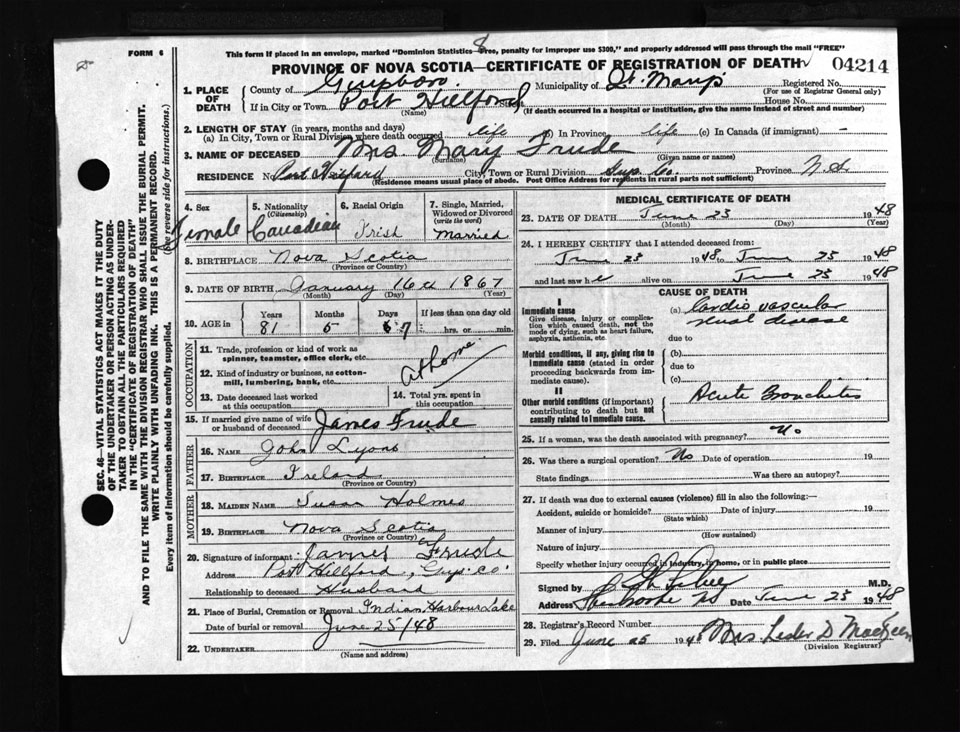 FORM 6
This form if placed in an envelope, marked "Dominion Statistics Free, penalty for improper use $300," and properly addressed will pass through the mail "FREE"
PROVINCE OF NOVA SCOTIA—CERTIFICATE OF REGISTRATION OF DEATH 04214
1. PLACE OF DEATH
County of Guysboro Municipality of St. Mary's Registered No.
(For use of Registrar General only)
If in City or Town Port Hillford House No.
(Name) (If death occurred in a hospital or institution, give the name instead of street and number)
2. LENGTH OF STAY (in years, months and days)
(a) In City, Town or Rural Division where death occurred life (b) In Province life (c) In Canada (if immigrant) -
3. NAME OF DECEASED Mrs. Mary Frude
(Surname) (Given name or names)
RESIDENCE No. Port Hilford City, Town or Rural Division Guys. Co. Province N.S.
(Residence means usual place of abode. Post Office Address for residents in rural parts not sufficient)
4. Sex Female
5. Nationality (Citizenship) Canadian
6. Racial Origin Irish
7. Single, Married, Widowed or Divorced (write the word) Married
8. BIRTHPLACE Nova Scotia
(Province or Country)
9. DATE OF BIRTH January 16th 1867
(Month) (Day) (Year)
10. AGE in Years 81 Months 5 Days 7 If less than one day old hrs. or min.
OCCUPATION
11. Trade, profession or kind of work as spinner, teamster, office clerk, etc.
at home
12. Kind of industry or business, as cotton-mill, lumbering, bank, etc.
13. Date deceased last worked at this occupation
14. Total yrs. spent in this occupation
15. If married give name of wife or husband of deceased James Frude
FATHER
16. NAME John Lyons
17. BIRTHPLACE Ireland
(Province or Country)
MOTHER
18. MAIDEN NAME Susan Holmes
19. BIRTHPLACE Nova Scotia
(Province or Country)
20. Signature of informant James Frude
Address Port Hillford, Guys. Co.
Relationship to deceased Husband
21. Place of Burial, Cremation or Removal Indian Harbour Lake
Date of burial or removal June 25/48
22. UNDERTAKER
(Name and address)
MEDICAL CERTIFICATE OF DEATH
23. DATE OF DEATH June 23 1948
(Month) (Day) (Year)
24. I HEREBY CERTIFY that I attended deceased from:
June 23 1948 to June 23 1948
and last saw h e alive on June 23 1948
CAUSE OF DEATH
I
Immediate cause
Give disease, injury or complication which caused death, not the mode of dying, such as heart failure, asphyxia, asthenia, etc.
(a) Cardio vascular renal disease
due to
Morbid conditions, if any, giving rise to immediate cause (stated in order proceeding backwards from immediate cause).
(b)
due to
(c)
II
Other morbid conditions (if important) contributing to death but not causally related to immediate cause.
Acute Bronchitis
25. If a woman, was the death associated with pregnancy? No
26. Was there a surgical operation? No Date of operation 19
State findings Was there an autopsy?
27. If death was due to external causes (violence) fill in also the following:—
Accident, suicide or homicide? Date of injury 19
(State which)
Manner of injury
(How sustained)
Nature of injury
Specify whether injury occurred in industry, in home, or in public place
Signed by M.D.
Address Sherbrooke NS Date June 23 1948
28. Registrar's Record Number
29. Filed June 25 1948 Mrs Lesler D MacKeen
(Division Registrar)
SEC. 46—VITAL STATISTICS ACT MAKES IT THE DUTY OF THE UNDERTAKER OR PERSON ACTING AS UNDERTAKER TO OBTAIN ALL THE PARTICULARS REQUIRED IN THE "CERTIFICATE OF REGISTRATION OF DEATH" AND TO FILE THE SAME WITH THE DIVISION REGISTRAR WHO SHALL ISSUE THE BURIAL PERMIT.
WRITE PLAINLY WITH UNFADING INK. THIS IS A PERMANENT RECORD.
Every item of information should be carefully supplied. (See reverse side for instructions.)